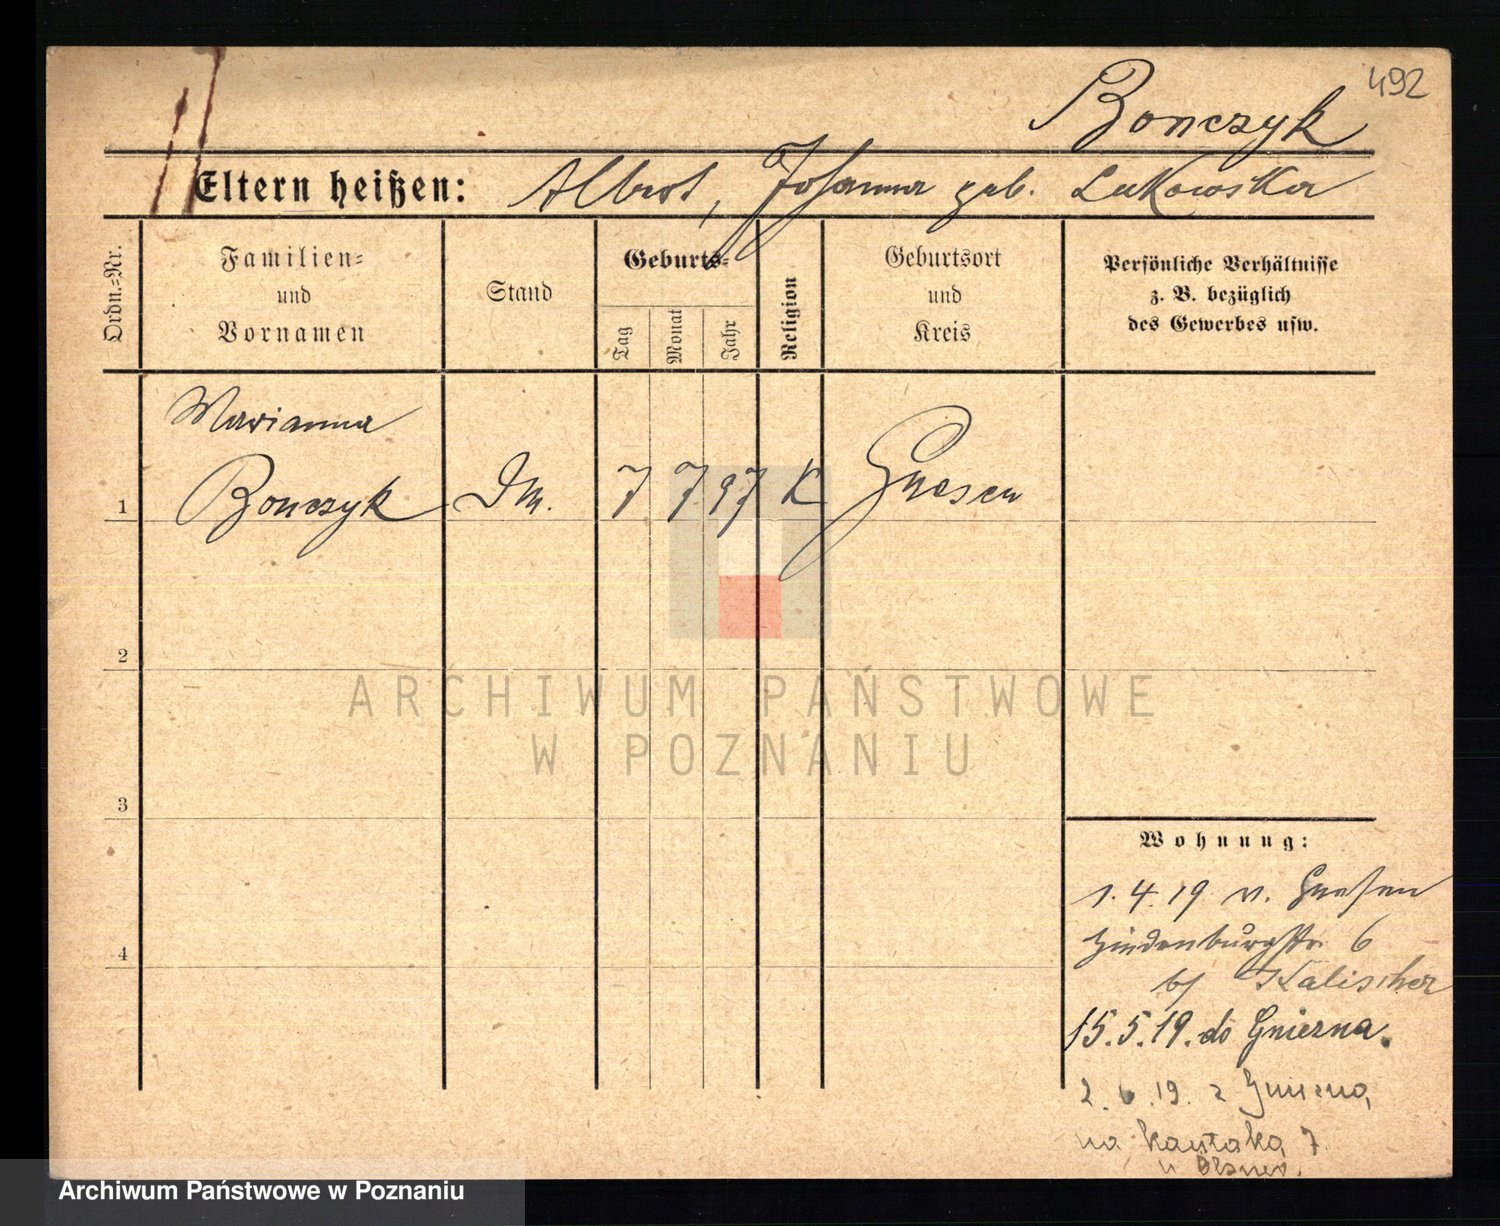 492
Bonczyk
Eltern heißen: Albert, Johanna geb. Lukowska
Ordn.=Nr.
Familien=
und
Vornamen
Stand
Geburts=
Tag
Monat
Jahr
Religion
Geburtsort
und
Kreis
Persönliche Verhältnisse
z. B. bezüglich
des Gewerbes usw.
Marianna
1 Bonczyk Dm. 7 7. 97 K Gnesen
2
3
4
ARCHIWUM PAŃSTWOWE
W POZNANIU
Wohnung:
1. 4. 19 v. Gnesen
Hindenburgstr. 6
b/ Kalischer
15. 5. 19. do Gniezna.
2. 6. 19. z
na Kantaka 7
u
Archiwum Państwowe w Poznaniu